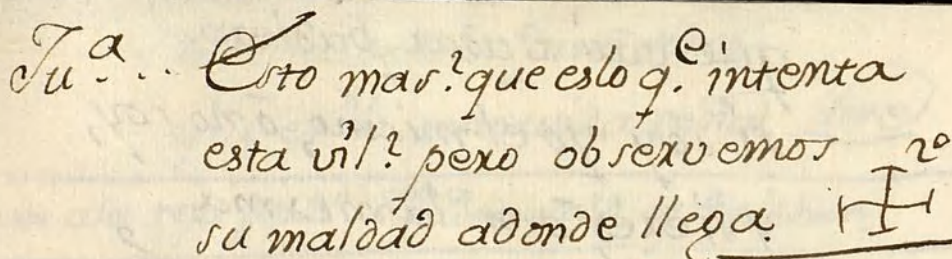 Ju.ª.. Esto mas? que es lo q.e intenta
esta vil? pero observemos 2º
su maldad adonde llega.